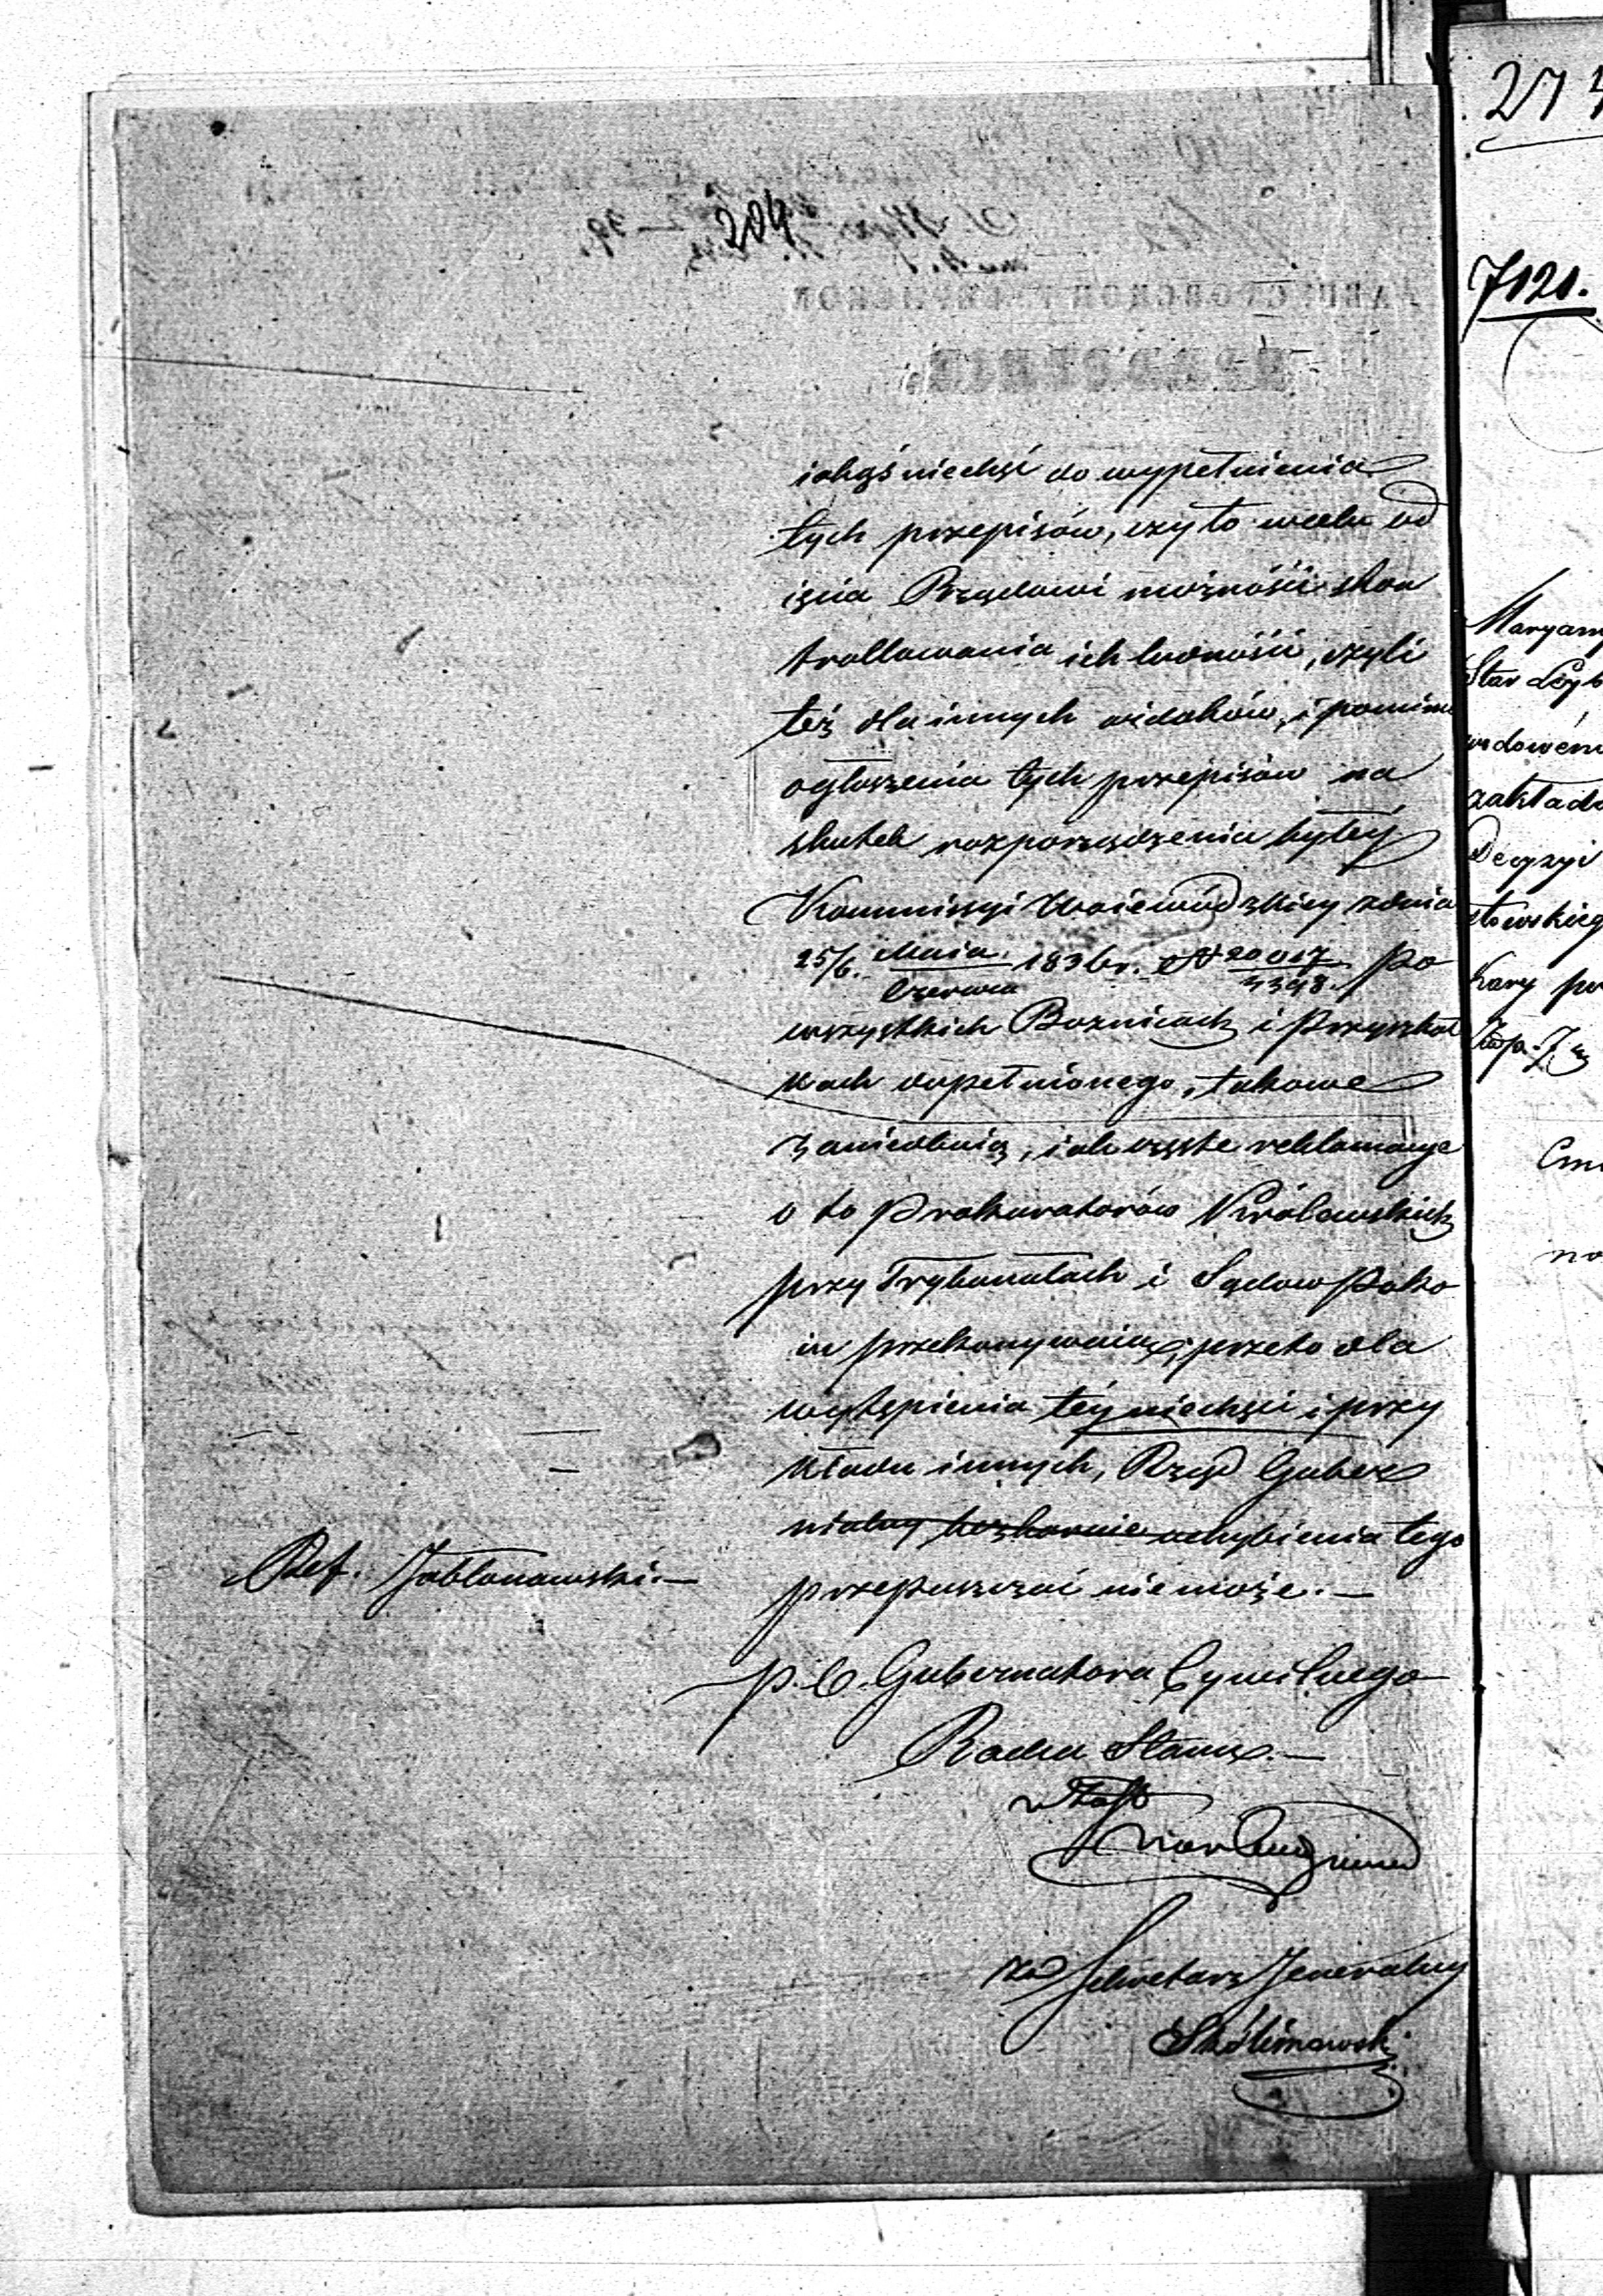 204
iakąś niechęć do wypełnienia
tych przepisów, czy to w celu od
ięcia Rządowi możności skon
trollowania ich ludności, czyli
też dla innych widoków, i pomimo
ogłoszenia tych przepisów na
skutek rozporządzenia byłey
Kommissyi Woiewódzkiey z dnia
25/6. Maia/Czerwca 1836 r. N 20017/4398. po
wszystkich Boznicach i Przyszkoł
kach dopełnionego, takowe
zaniedbuią, iak częste reklamacye
o to Prokuratorów Królewskich
przy Trybunałach i Sądów Poko
iu przekonywaią, przeto dla
wytępienia téy niechęci i przy
kładu innych, Rząd Guber
nialny bezkarnie uchybienia tego
przepuszczać niemoże.—
Ref. Jabłonowski.—
p. O. Gubernatora Cywilnego
Radca Stanu.—
w Zast
za Sekretarz Jeneralny
Skolimowski
274
7121.
Maryam
Star Leyb
wdowem
zakłado
Decyzyi
stowskieg
Kary po